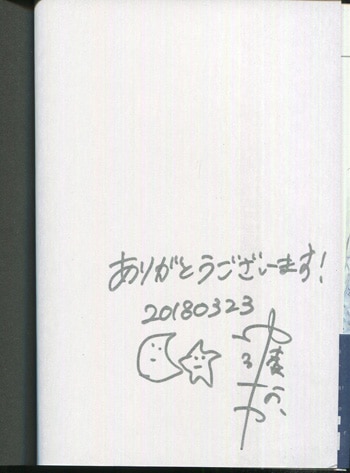 ありがとうございます!
20180323